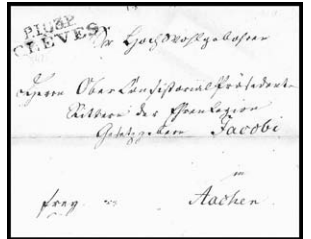 P.103.P.
CLEVES
Sr Hochwohlgebohren
Herrn OberConsistorialPräsident
Rittern der Ehrenlegion
Gesetzgebern Jacobi
in
frey Aachen